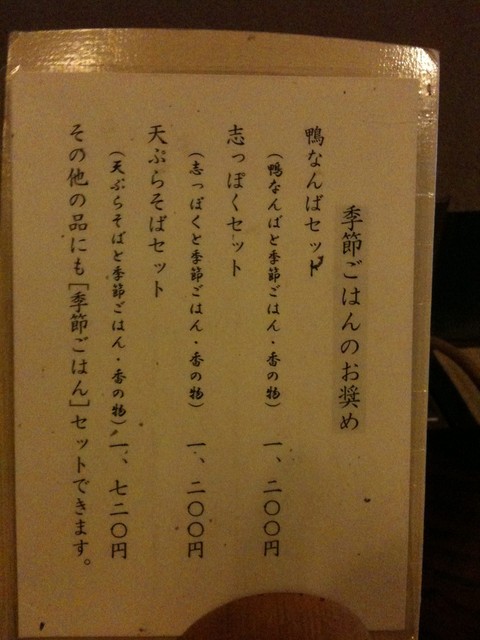 季節ごはんのお奨め
鴨なんばセット
（鴨なんばと季節ごはん・香の物）　一、二〇〇円
志っぽくセット
（志っぽくと季節ごはん・香の物）　一、二〇〇円
天ぷらそばセット
（天ぷらそばと季節ごはん・香の物）一、七二〇円
その他の品にも［季節ごはん］セットできます。